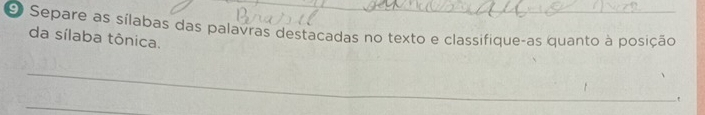 9 Separe as sílabas das palavras destacadas no texto e classifique-as quanto à posição
da sílaba tônica.